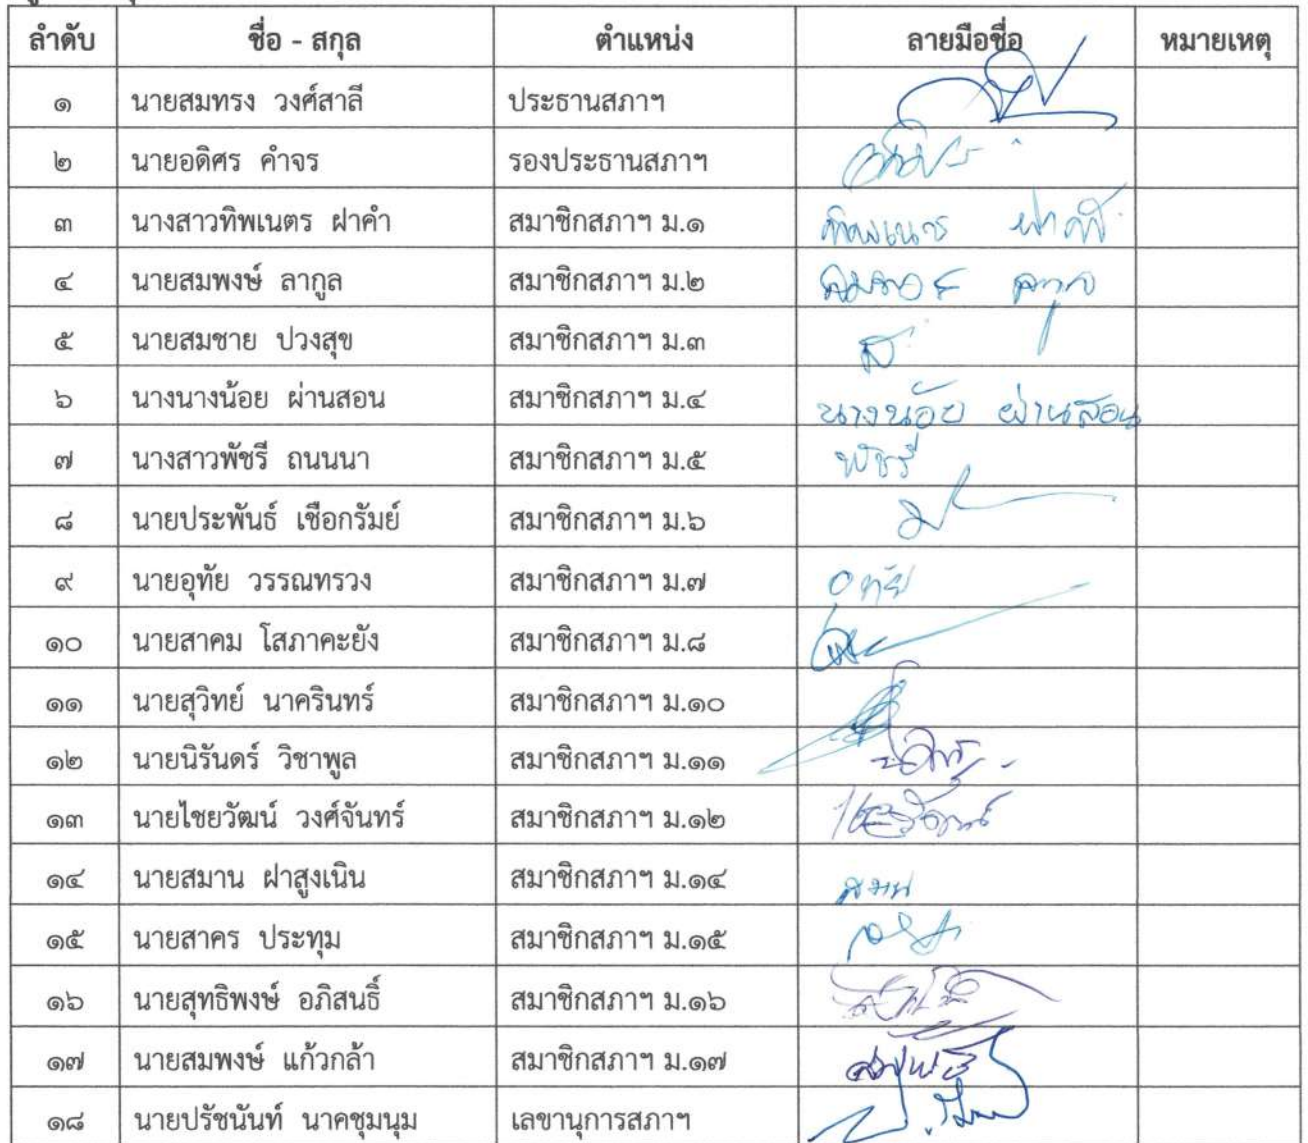 ลำดับ ชื่อ - สกุล ตำแหน่ง ลายมือชื่อ หมายเหตุ
๑ นายสมทรง วงศ์สาลี ประธานสภาฯ
๒ นายอดิศร คำจร รองประธานสภาฯ
๓ นางสาวทิพเนตร ฝาคำ สมาชิกสภาฯ ม.๑ ทิพเนตร ฝาคำ
๔ นายสมพงษ์ ลากูล สมาชิกสภาฯ ม.๒
๕ นายสมชาย ปวงสุข สมาชิกสภาฯ ม.๓
๖ นางนางน้อย ผ่านสอน สมาชิกสภาฯ ม.๔ นางน้อย ผ่านสอน
๗ นางสาวพัชรี ถนนนา สมาชิกสภาฯ ม.๕ พัชรี
๘ นายประพันธ์ เชือกรัมย์ สมาชิกสภาฯ ม.๖
๙ นายอุทัย วรรณทรวง สมาชิกสภาฯ ม.๗ อุทัย
๑๐ นายสาคม โสภาคะยัง สมาชิกสภาฯ ม.๘
๑๑ นายสุวิทย์ นาครินทร์ สมาชิกสภาฯ ม.๑๐
๑๒ นายนิรันดร์ วิชาพูล สมาชิกสภาฯ ม.๑๑
๑๓ นายไชยวัฒน์ วงศ์จันทร์ สมาชิกสภาฯ ม.๑๒
๑๔ นายสมาน ฝาสูงเนิน สมาชิกสภาฯ ม.๑๔ สมาน
๑๕ นายสาคร ประทุม สมาชิกสภาฯ ม.๑๕
๑๖ นายสุทธิพงษ์ อภิสนธิ์ สมาชิกสภาฯ ม.๑๖
๑๗ นายสมพงษ์ แก้วกล้า สมาชิกสภาฯ ม.๑๗
๑๘ นายปรัชนันท์ นาคชุมนุม เลขานุการสภาฯ